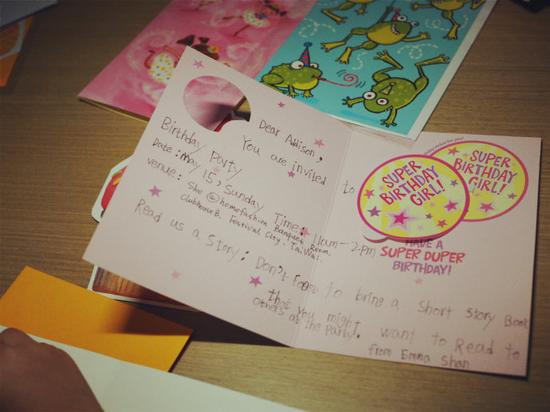 Dear Addison,
You are invited to
Birthday party
Date: May 15, Sunday Time: 11am-2pm
Venue: She @ homefashion Banquet Room,
Clubhouse, Festival City, Tai Wai.
Read us a Story: Don't Forget to bring a Short Story Book
that you might want to Read to
Others at the Party!
from Emma Shan
SUPER
BIRTHDAY
GIRL!
SUPER
BIRTHDAY
GIRL!
HAVE A
SUPER DUPER
BIRTHDAY!